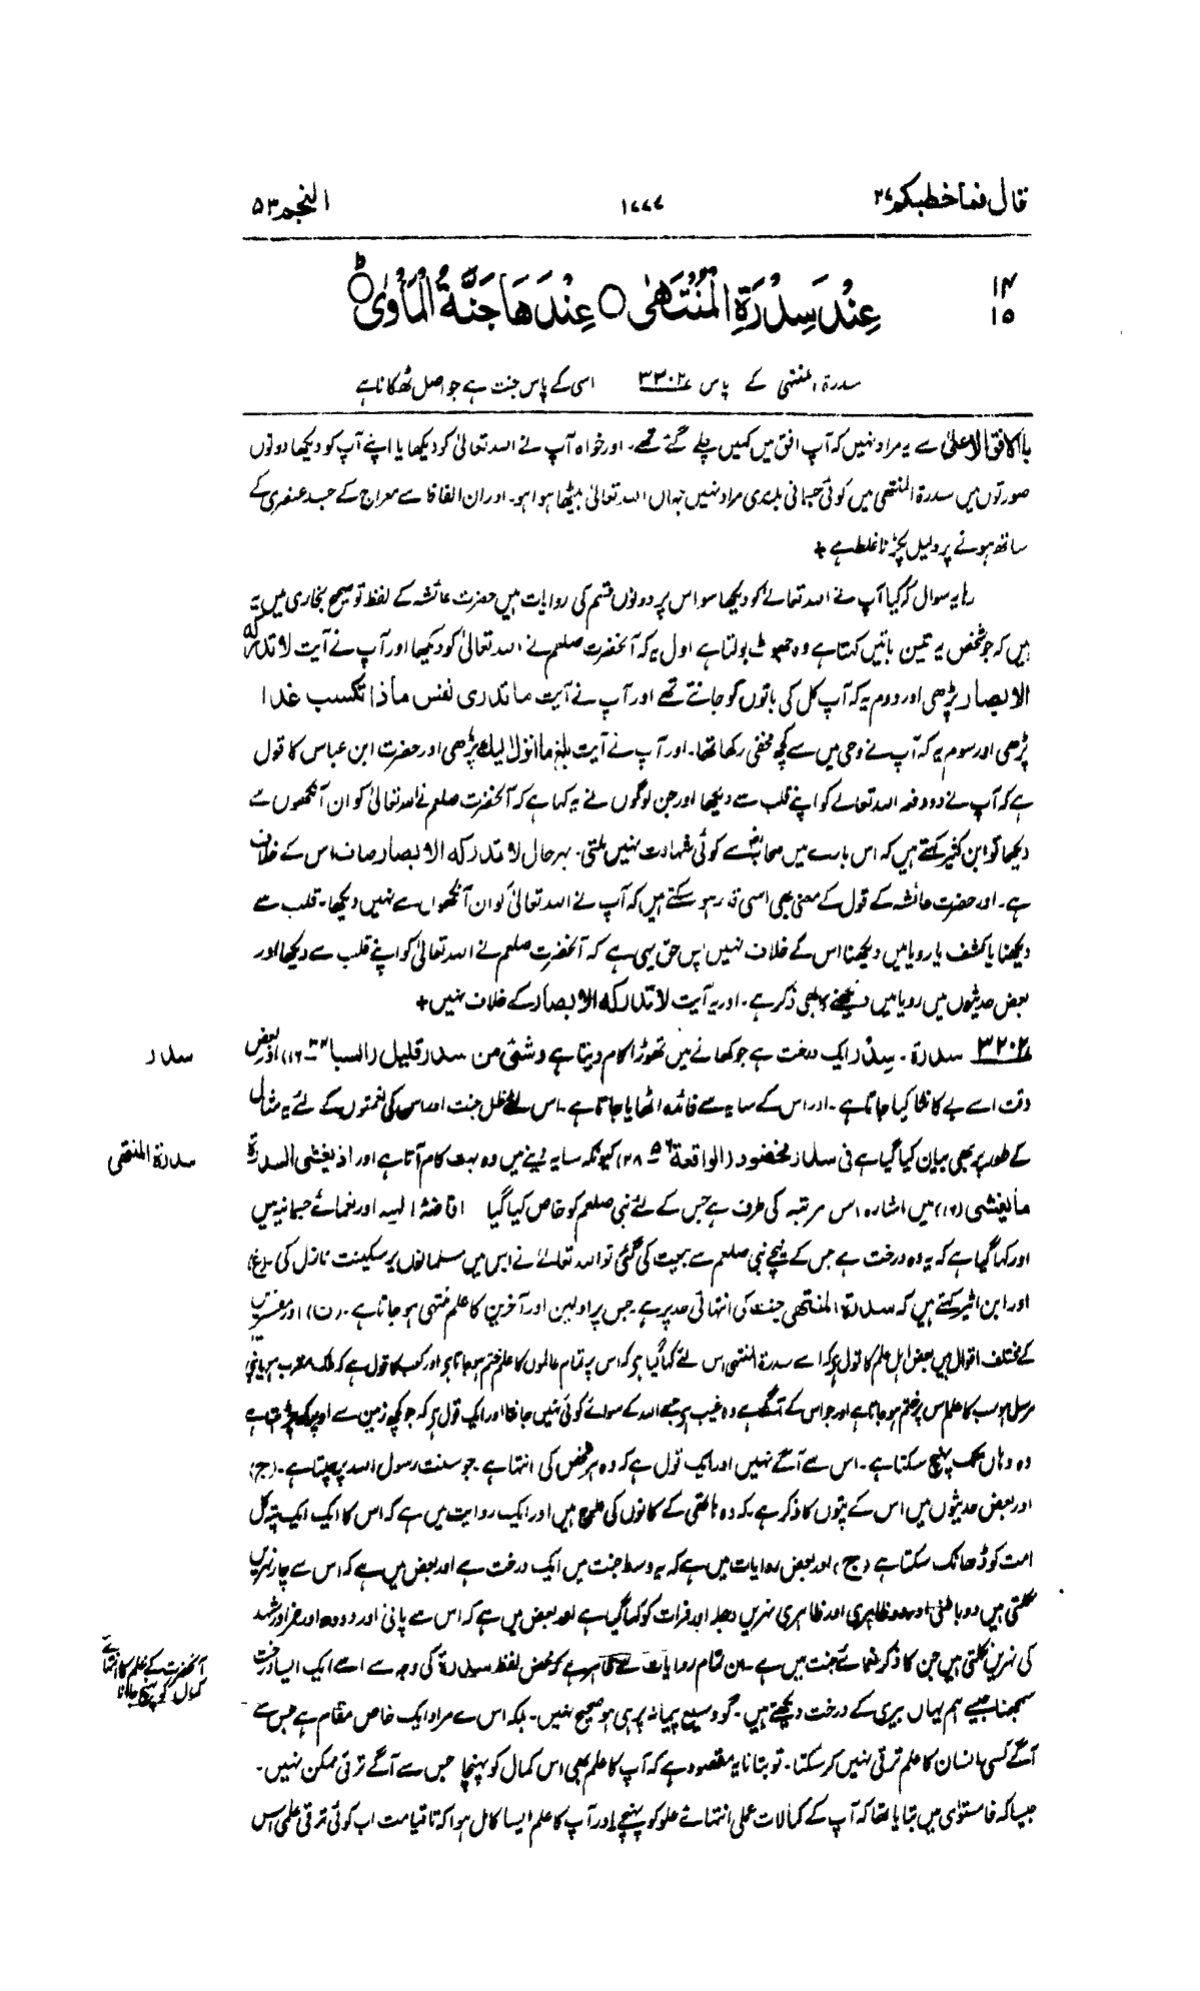 قال فما خطبکم ۲۷
۱۷۷۷
النجم ۵۳
۱۴
عِنْدَ سِدْرَةِ الْمُنْتَهٰی ○ عِنْدَهَا جَنَّةُ الْمَاْوٰی ○ ط
۱۵
سدرۃ المنتہی کے پاس ۳۲۰۲ اسی کے پاس جنت ہے جو اصل ٹھکانا ہے
بالافق الاعلیٰ سے یہ مراد نہیں کہ آپ افق میں کہیں چلے گئے تھے۔ اور خواہ آپ نے اللہ تعالیٰ کو دیکھا یا اپنے آپ کو دیکھا دونوں
صورتوں میں سدرۃ المنتھی میں کوئی جسمانی بلندی مراد نہیں جہاں اللہ تعالیٰ بیٹھا ہوا ہو۔ اور ان الفاظ سے معراج کے جسد عنصری کے
ساتھ ہونے پر دلیل پکڑنا غلط ہے +
رہا یہ سوال کہ کیا آپ نے اللہ تعالےٰ کو دیکھا سو اس پر دونوں قسم کی روایات ہیں حضرت عائشہ کے لفظ تو صحیح بخاری میں یہ
ہیں کہ جو شخص یہ تین باتیں کہتا ہے وہ جھوٹ بولتا ہے اول یہ کہ آنحضرت صلعم نے اللہ تعالیٰ کو دیکھا اور آپ نے آیت لا تدرکہ
الابصار پڑھی اور دوم یہ کہ آپ کل کی باتوں کو جانتے تھے اور آپ نے آیت ما تدری نفس ماذا تکسب غدا
پڑھی اور سوم یہ کہ آپ نے وحی میں سے کچھ مخفی رکھا تھا۔ اور آپ نے آیت بلغ ما انزل الیک پڑھی اور حضرت ابن عباس کا قول
ہے کہ آپ نے دو دفعہ اللہ تعالےٰ کو اپنے قلب سے دیکھا اور جن لوگوں نے یہ کہا ہے کہ آنحضرت صلعم نے اللہ تعالیٰ کو ان آنکھوں سے
دیکھا تو ابن کثیر کہتے ہیں کہ اس بارے میں صحابہؓ سے کوئی شہادت نہیں ملتی۔ بہرحال لا تدرکہ الابصار صاف اس کے خلاف
ہے۔ اور حضرت عائشہ کے قول کے معنی بھی اسی قدر ہو سکتے ہیں کہ آپ نے اللہ تعالیٰ کو ان آنکھوں سے نہیں دیکھا۔ قلب سے
دیکھنا یا کشف یا رویا میں دیکھنا اس کے خلاف نہیں پس حق یہی ہے کہ آنحضرت صلعم نے اللہ تعالیٰ کو اپنے قلب سے دیکھا اور
بعض حدیثوں میں رویا میں دیکھنے کا بھی ذکر ہے۔ اور یہ آیت لا تدرکہ الابصار کے خلاف نہیں +
۳۲۰۲ سدرۃ۔ سِدْر ایک درخت ہے جو کھانے میں تھوڑا کام دیتا ہے وشئ من سدر قلیل (السبا ۳۴ ۱۶) اور بعض
سدر
وقت اسے بے کانٹا کیا جاتا ہے۔ اور اس کے سایہ سے فائدہ اٹھایا جاتا ہے۔ اس لئے ظل جنت اور اس کی نعمتوں کے لئے یہ مثال
کے طور پر بھی بیان کیا گیا ہے فی سدر مخضود (الواقعۃ ۵۶ ۲۸) کیونکہ سایہ دینے میں وہ بہت کام آتا ہے اور اذ یغشی السدرۃ
سدرۃ المنتھی
ما یغشی (۱۶) میں اشارہ اس مرتبہ کی طرف ہے جس کے لئے نبی صلعم کو خاص کیا گیا افاضۂ الہیہ اور نعمائے جسمانیہ میں
اور کہا گیا ہے کہ یہ وہ درخت ہے جس کے نیچے نبی صلعم سے بیعت کی گئی تو اللہ تعالےٰ نے اس میں مسلمانوں پر سکینت نازل کی (غ)
اور ابن اثیر کہتے ہیں کہ سدرۃ المنتھی جنت کی انتہائی حد پر ہے۔ جس پر اولین اور آخرین کا علم منتہی ہو جاتا ہے۔ (ن) اور مفسرین
کے مختلف اقوال ہیں بعض اہل علم کا قول ہے کہ اسے سدرۃ المنتھی اس لئے کہا گیا ہے کہ اس پر تمام عالموں کا علم ختم ہو جاتا ہے اور کعب کا قول ہے کہ ملک مقرب ہو یا نبی
مرسل ہو سب کا علم اس پر ختم ہو جاتا ہے اور جو اس کے آگے ہے وہ غیب ہے جسے اللہ کے سوائے کوئی نہیں جانتا اور ایک قول ہے کہ جو کچھ زمین سے اوپر کو چڑھتا ہے
وہ وہاں تک پہنچ سکتا ہے۔ اس سے آگے نہیں اور ایک قول ہے کہ وہ ہر شخص کی انتہا ہے۔ جو سنت رسول اللہ پر چلتا ہے۔ (ج)
اور بعض حدیثوں میں اس کے پتوں کا ذکر ہے کہ وہ ہاتھی کے کانوں کی طرح ہیں اور ایک روایت میں ہے کہ اس کا ایک ایک پتہ کل
امت کو ڈھانک سکتا ہے (ج) اور بعض روایات میں ہے کہ یہ وسط جنت میں ایک درخت ہے اور بعض میں ہے کہ اس سے چار نہریں
نکلتی ہیں دو باطنی اور دو ظاہری اور ظاہری نہریں دجلہ اور فرات کو کہا گیا ہے اور بعض میں ہے کہ اس سے پانی اور دودھ اور خمر اور شہد
کی نہریں نکلتی ہیں جن کا ذکر نعمائے جنت میں ہے۔ ان تمام روایات سے ظاہر ہے کہ محض لفظ سدرۃ کی وجہ سے اسے ایک ایسا درخت
آنحضرت کے علم کا انتہائے
کمال کو پہنچ جانا
سمجھنا جیسے ہم یہاں بیری کے درخت دیکھتے ہیں۔ گو وسیع پیمانہ پر ہی ہو صحیح نہیں۔ بلکہ اس سے مراد ایک خاص مقام ہے جس سے
آگے کسی انسان کا علم ترقی نہیں کر سکتا۔ تو بتانا یہ مقصود ہے کہ آپ کا علم بھی اس کمال کو پہنچا جس سے آگے ترقی ممکن نہیں۔
جیسا کہ فاستوٰی میں بتایا تھا کہ آپ کے کمالات عملی انتہائے علو کو پہنچے اور آپ کا علم ایسا کامل ہوا کہ تا قیامت اب کوئی ترقی علمی اس